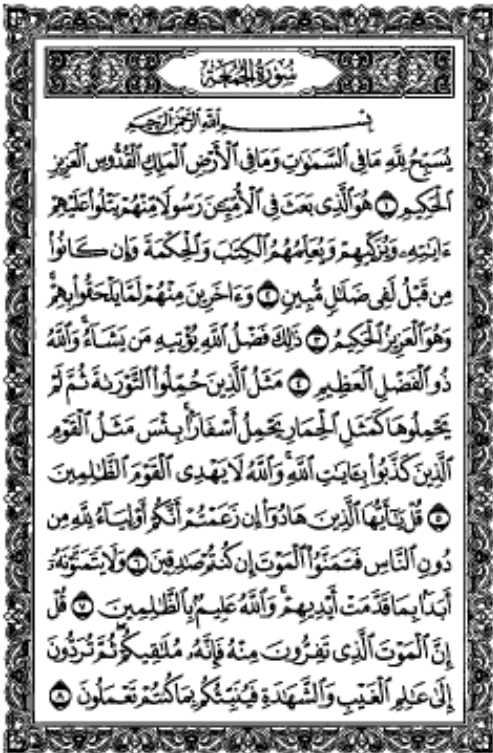 سُورَةُ الجُمُعَةِ
بِسْمِ ٱللَّهِ ٱلرَّحْمَٰنِ ٱلرَّحِيمِ
يُسَبِّحُ لِلَّهِ مَا فِى ٱلسَّمَٰوَٰتِ وَمَا فِى ٱلْأَرْضِ ٱلْمَلِكِ ٱلْقُدُّوسِ ٱلْعَزِيزِ
ٱلْحَكِيمِ ١ هُوَ ٱلَّذِى بَعَثَ فِى ٱلْأُمِّيِّـۧنَ رَسُولًا مِّنْهُمْ يَتْلُوا۟ عَلَيْهِمْ
ءَايَٰتِهِۦ وَيُزَكِّيهِمْ وَيُعَلِّمُهُمُ ٱلْكِتَٰبَ وَٱلْحِكْمَةَ وَإِن كَانُوا۟
مِن قَبْلُ لَفِى ضَلَٰلٍ مُّبِينٍ ٢ وَءَاخَرِينَ مِنْهُمْ لَمَّا يَلْحَقُوا۟ بِهِمْ ۚ
وَهُوَ ٱلْعَزِيزُ ٱلْحَكِيمُ ٣ ذَٰلِكَ فَضْلُ ٱللَّهِ يُؤْتِيهِ مَن يَشَآءُ ۚ وَٱللَّهُ
ذُو ٱلْفَضْلِ ٱلْعَظِيمِ ٤ مَثَلُ ٱلَّذِينَ حُمِّلُوا۟ ٱلتَّوْرَىٰةَ ثُمَّ لَمْ
يَحْمِلُوهَا كَمَثَلِ ٱلْحِمَارِ يَحْمِلُ أَسْفَارًۢا ۚ بِئْسَ مَثَلُ ٱلْقَوْمِ
ٱلَّذِينَ كَذَّبُوا۟ بِـَٔايَٰتِ ٱللَّهِ ۚ وَٱللَّهُ لَا يَهْدِى ٱلْقَوْمَ ٱلظَّٰلِمِينَ
٥ قُلْ يَٰٓأَيُّهَا ٱلَّذِينَ هَادُوٓا۟ إِن زَعَمْتُمْ أَنَّكُمْ أَوْلِيَآءُ لِلَّهِ مِن
دُونِ ٱلنَّاسِ فَتَمَنَّوُا۟ ٱلْمَوْتَ إِن كُنتُمْ صَٰدِقِينَ ٦ وَلَا يَتَمَنَّوْنَهُۥٓ
أَبَدًۢا بِمَا قَدَّمَتْ أَيْدِيهِمْ ۚ وَٱللَّهُ عَلِيمٌۢ بِٱلظَّٰلِمِينَ ٧ قُلْ
إِنَّ ٱلْمَوْتَ ٱلَّذِى تَفِرُّونَ مِنْهُ فَإِنَّهُۥ مُلَٰقِيكُمْ ۖ ثُمَّ تُرَدُّونَ
إِلَىٰ عَٰلِمِ ٱلْغَيْبِ وَٱلشَّهَٰدَةِ فَيُنَبِّئُكُم بِمَا كُنتُمْ تَعْمَلُونَ ٨